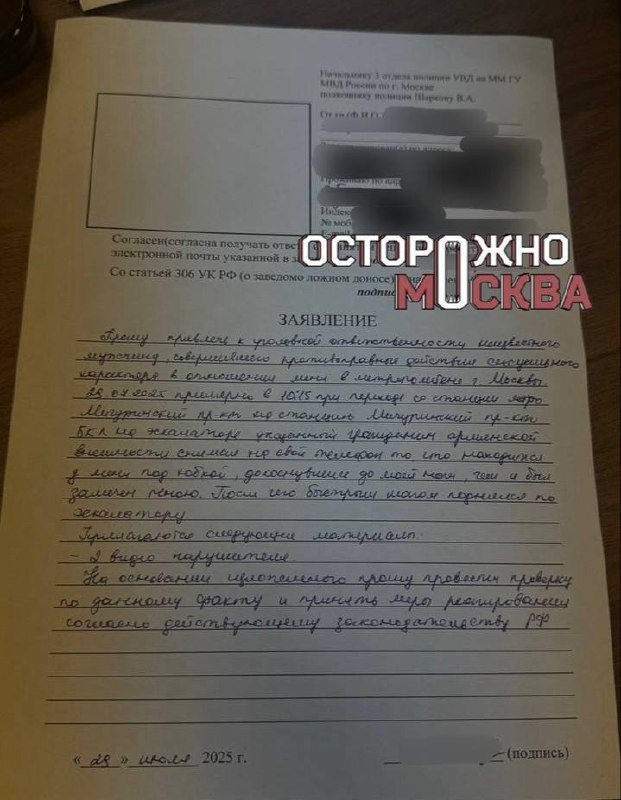 Начальнику 3 отдела полиции УВД на ММ ГУ
МВД России по г. Москве
полковнику полиции Шаркову В.А.
От гр (Ф.И.О.
Проживаю по адр
Индек
№ моб
E-mail
Согласен(согласна получать ответ
электронной почты указанной в з
Со статьей 306 УК РФ (о заведомо ложном доносе)
подпис
ОСТОРОЖНО
МОСКВА
ЗАЯВЛЕНИЕ
Прошу привлечь к уголовной ответственности неизвестного
мужчину, совершившего противоправные действия сексуального
характера в отношении меня в метрополитене г. Москвы
29.07.2025 примерно в 10:15 при переходе со станции метро
Мичуринский пр-кт на станцию Мичуринский пр-кт
БКЛ на эскалаторе указанный гражданин армянской
внешности снимал на свой телефон то что находится
у меня под юбкой, докоснувшись до моей ноги, чем и был
замечен мною. После чего быстрым шагом поднялся по
эскалатору
Прилагаются следующие материалы:
- 2 видео нарушителя
На основании изложенного прошу провести проверку
по данному факту и принять меры реагирования
согласно действующему законодательству РФ
« 29 » июля 2025 г.
(подпись)